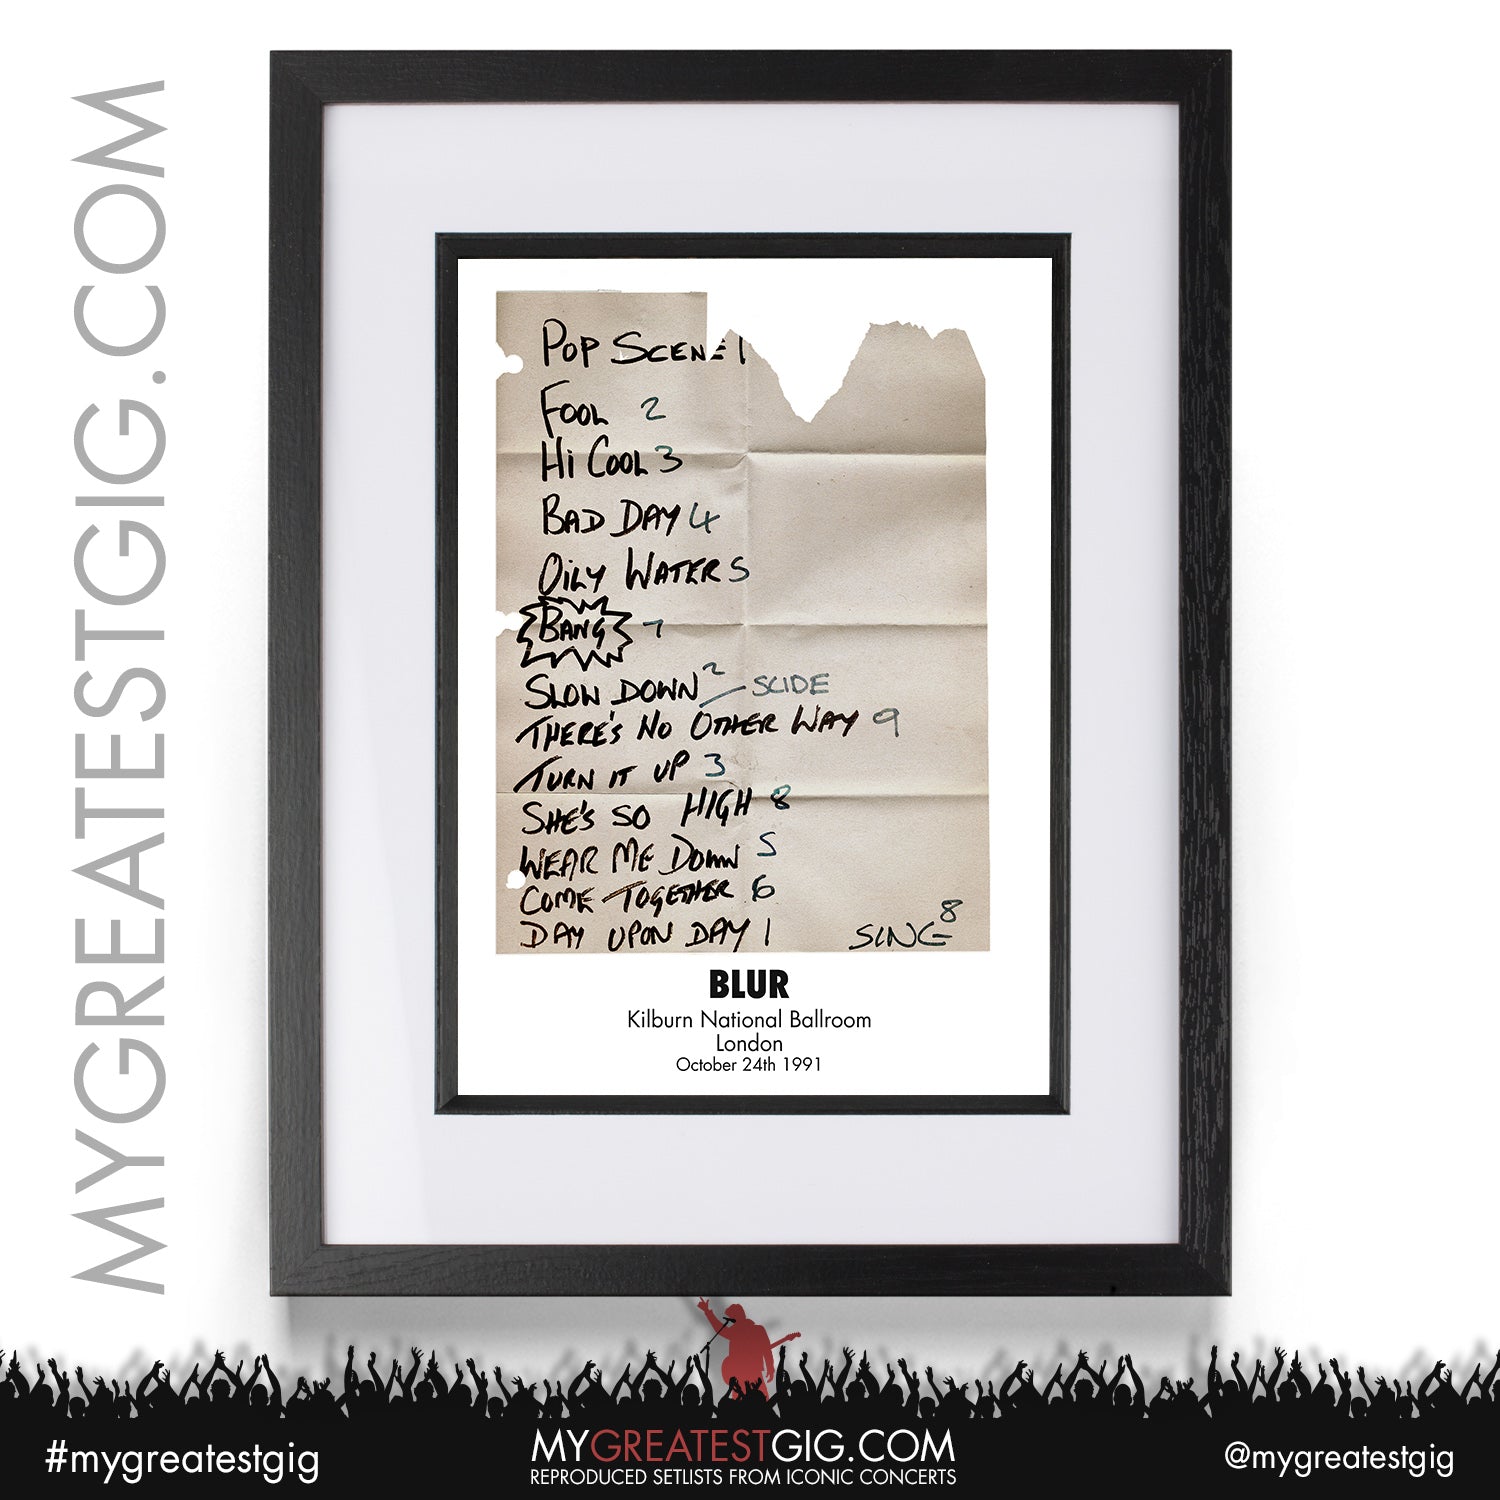 MYGREATESTGIG.COM
POP SCENE 1
FOOL 2
Hi COOL 3
BAD DAY 4
OiLY WATER 5
BANG 7
SLOW DOWN 2 SLIDE
THERE'S NO OTHER WAY 9
TURN IT UP 3
SHE'S SO HIGH 8
WEAR ME DOWN 5
COME TOGETHER 6
DAY UPON DAY 1
SING 8
BLUR
Kilburn National Ballroom
London
October 24th 1991
#mygreatestgig
MYGREATESTGIG.COM
REPRODUCED SETLISTS FROM ICONIC CONCERTS
@mygreatestgig